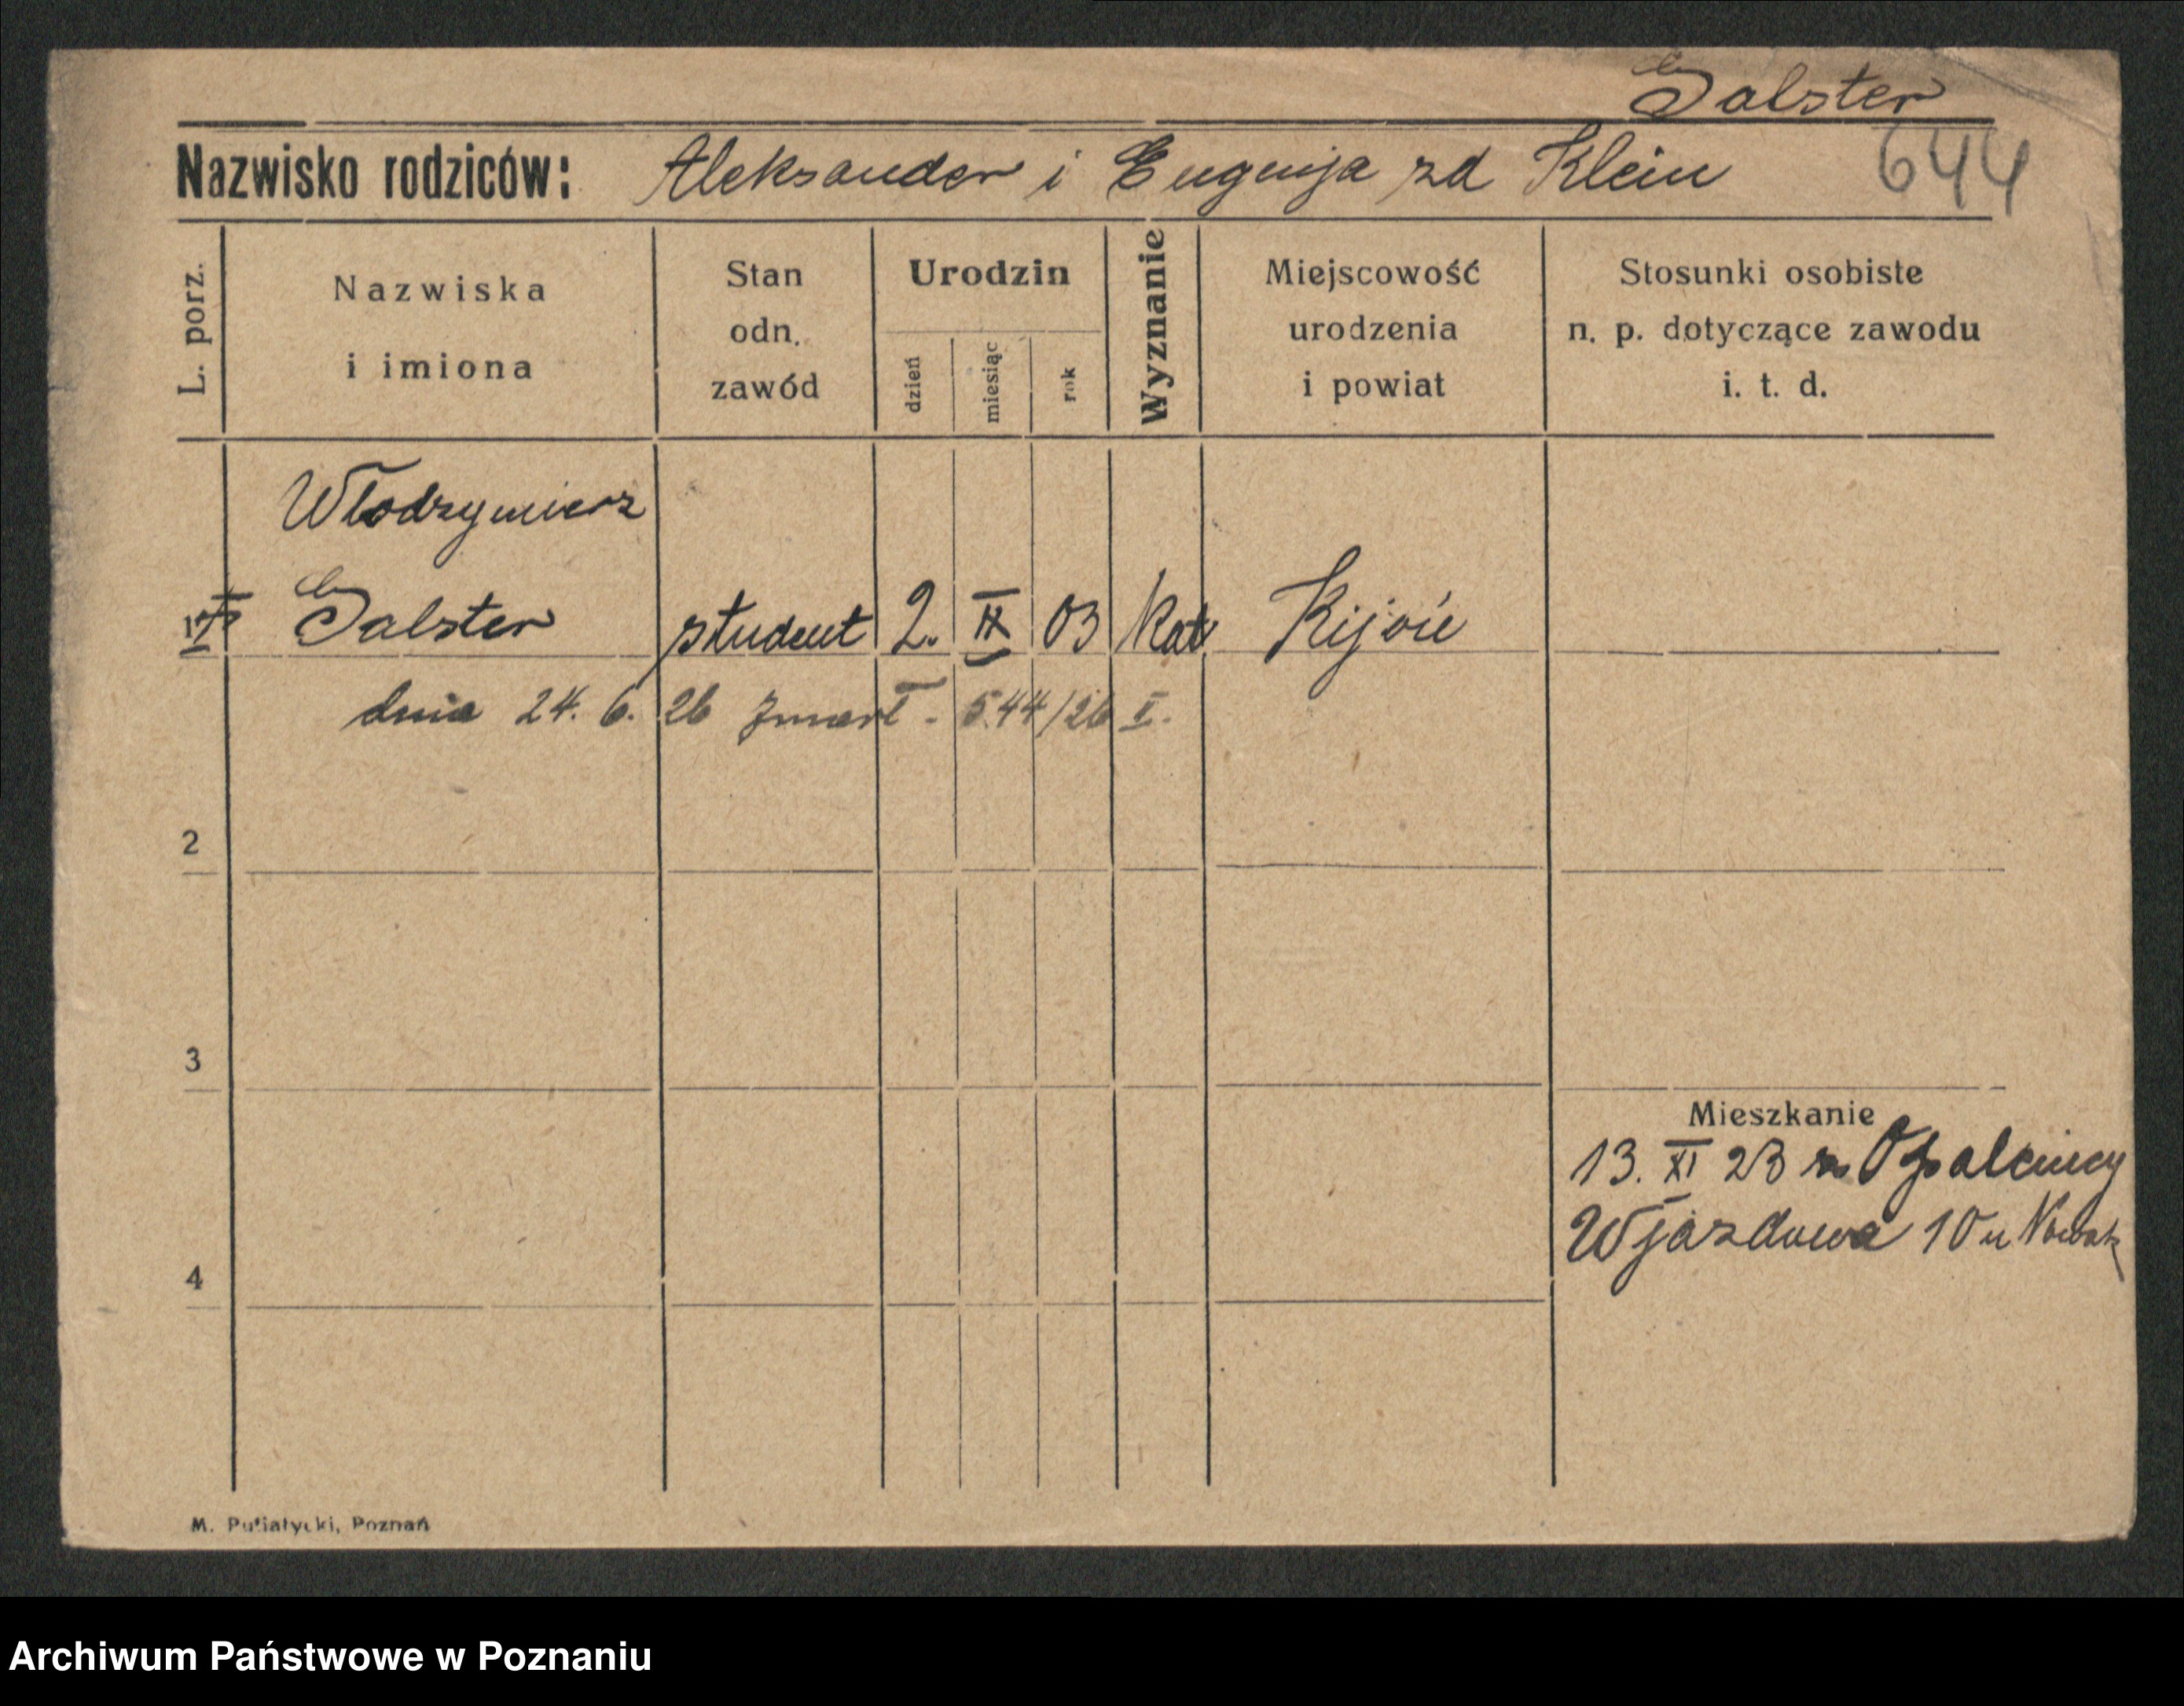 Galster
Nazwisko rodziców: Aleksander i Eugenja zd Klein 644
L. porz.
Nazwiska
i imiona
Stan
odn.
zawód
Urodzin
dzień
miesiąc
rok
Wyznanie
Miejscowość
urodzenia
i powiat
Stosunki osobiste
n. p. dotyczące zawodu
i. t. d.
Włodzymierz
1 Galster student 2. 03 Kat. Kijów
dnia 24. 6. 26 zmarł - 544/26 I.
2
3
4
Mieszkanie
13. XI 23 z Opalenicy
Wjazdowa 10 u Nowak
M. Putiatycki, Poznań
Archiwum Państwowe w Poznaniu